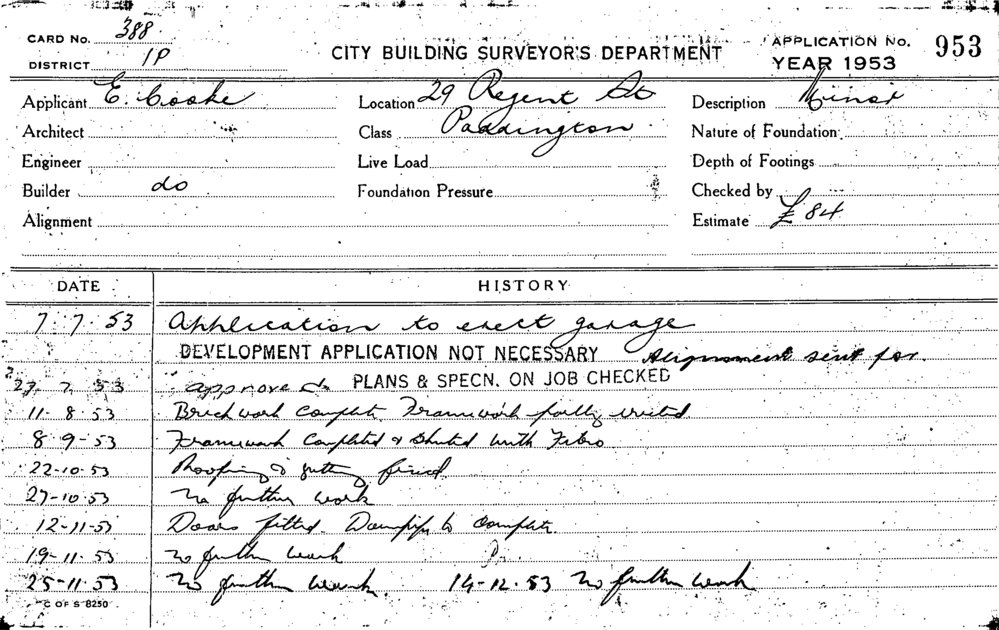 CARD No. 388
DISTRICT 1P
CITY BUILDING SURVEYOR'S DEPARTMENT
APPLICATION No. 953
YEAR 1953
Applicant E. Cooke
Location 29 Regent St
Description Minor
Architect
Class Paddington
Nature of Foundation
Engineer
Live Load
Depth of Footings
Builder do
Foundation Pressure
Checked by
Alignment
Estimate £84
DATE HISTORY
7.7.53 Application to erect garage
DEVELOPMENT APPLICATION NOT NECESSARY Alignment sent for.
27.7.53 approved PLANS & SPECN. ON JOB CHECKED
11.8.53 Brickwork complete. Framework partly erected
8.9.53 Framework Completed & Sheeted with Fibro
22-10-53 Roofing & guttering fixed
27-10-53 No further work
12-11-53 Doors fitted. Downpipe to complete
19-11-53 No further work
25-11-53 No further work. 14-12.53 No further work
C OF S 8250